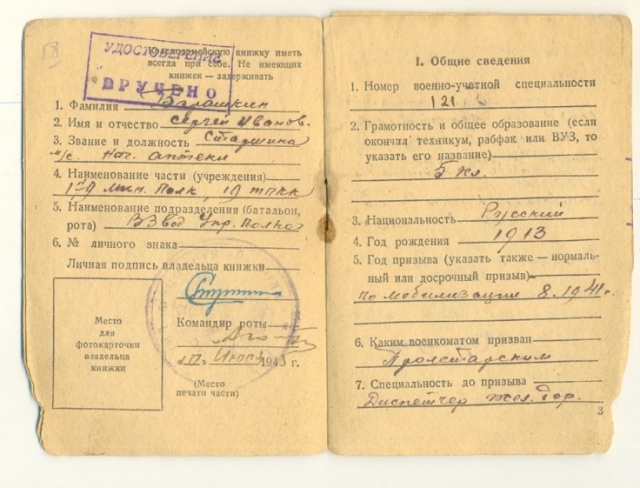 УДОСТОВЕРЕНИЕ
ВРУЧЕНО
Красноармейскую книжку иметь
всегда при себе. Не имеющих
книжек — задерживать
1. Фамилия Барашкин
2. Имя и отчество Сергей Иванов.
3. Звание и должность Старшина
м/с. Нач. аптеки
4. Наименование части (учреждения)
полк,
5. Наименование подразделения (батальон,
рота) Взвод Упр. Полка
6. № личного знака
Личная подпись владельца книжки
Командир роты
Место
для
фотокарточки
владельца
книжки
1943 г.
(Место
печати части)
I. Общие сведения
1. Номер военно-учетной специальности
121
2. Грамотность и общее образование (если
окончил техникум, рабфак или ВУЗ, то
указать его название)
5 кл.
3. Национальность Русский
4. Год рождения 1913
5. Год призыва (указать также — нормаль-
ный или досрочный призыв)
по мобилизации 8.1941 г.
6. Каким военкоматом призван
Пролетарским
7. Специальность до призыва
Диспетчер жел. дор.
3